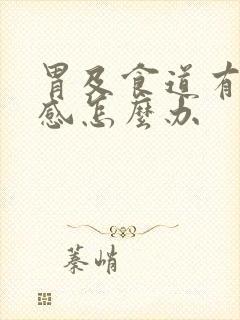 胃及食道有
感怎麼办
蓁峭